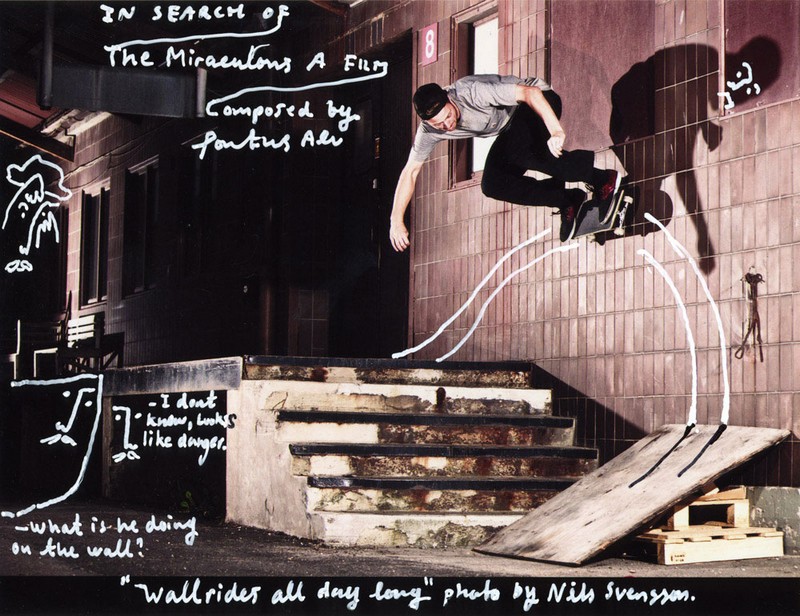 IN SEARCH OF
The Miraculous A FILM
Composed by
Pontus Alv
8
- I dont
know, Looks
like danger.
- what is he doing
on the wall?
"Wallrides all day long" photo by Nils Svensson.